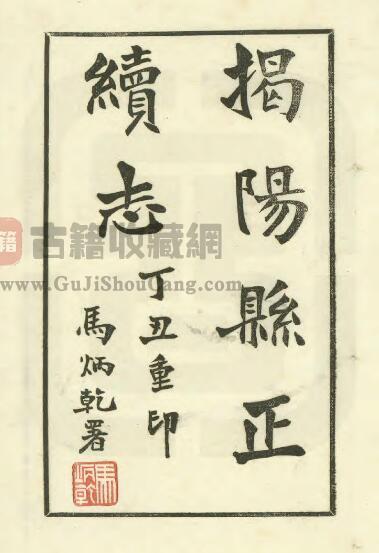 揭陽縣正
續志
丁丑重印
馬炳乾署
馬炳乾
籍
古籍收藏網
www.GuJiShouCang.com